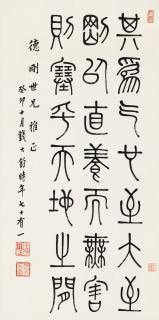 其為气也至大至
剛以直養而無害
則塞乎天地之間
德剛世兄雅正
癸卯十月錢大鈞時年七十有一